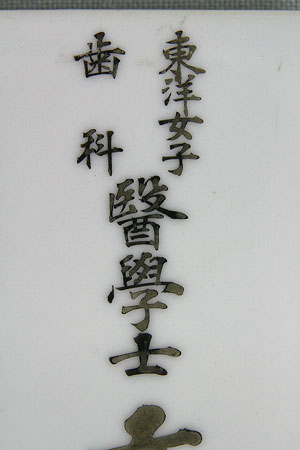 東洋女子
歯科
醫學士